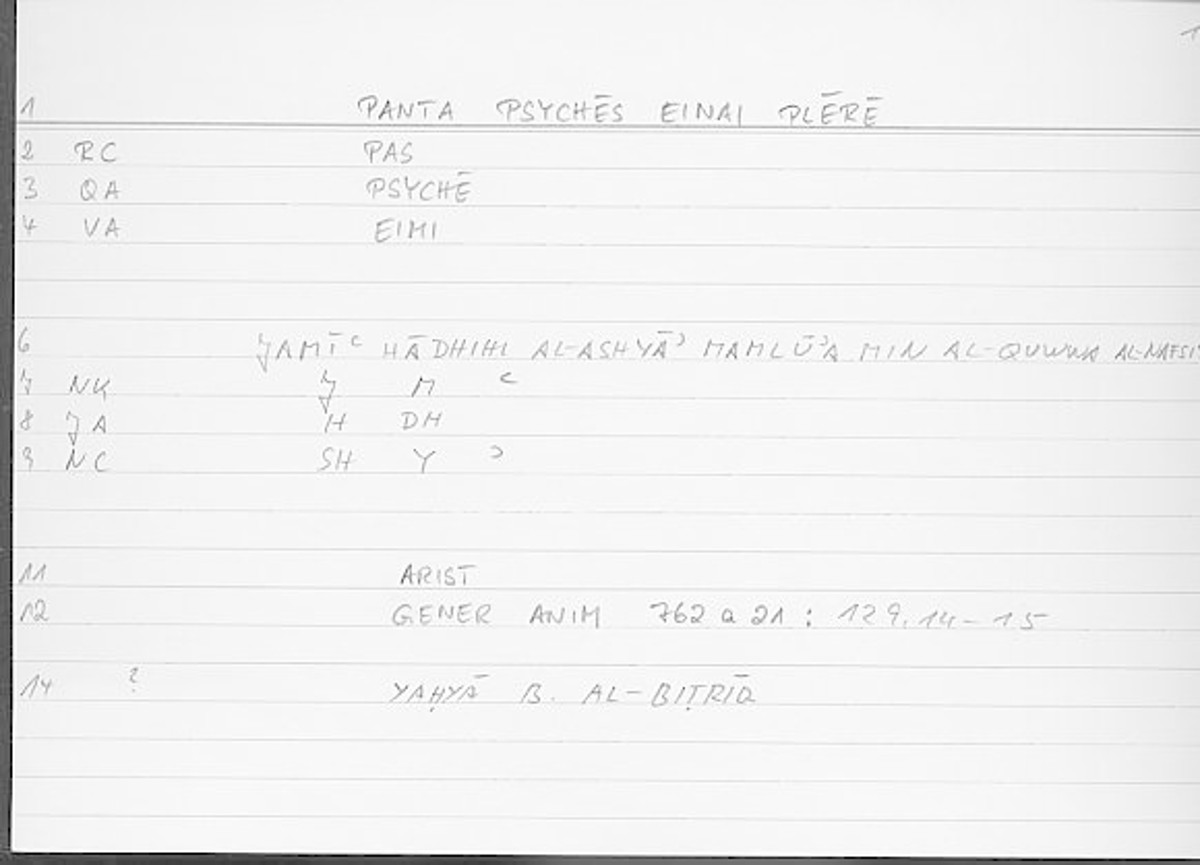 1
1 PANTA PSYCHĒS EINAI PLĒRĒ
2 RC PAS
3 QA PSYCHĒ
4 VA EIMI
6 JAMĪʿ HĀDHIHI AL-ASHYĀʾ MAMLŪʾA MIN AL-QUWWA AL-NAFSI
7 NK J M ʿ
8 JA H DH
9 NC SH Y ʾ
11 ARIST
12 GENER ANIM 762 a 21 : 129.14-15
14 ? YAḤYĀ B. AL-BIṬRĪQ